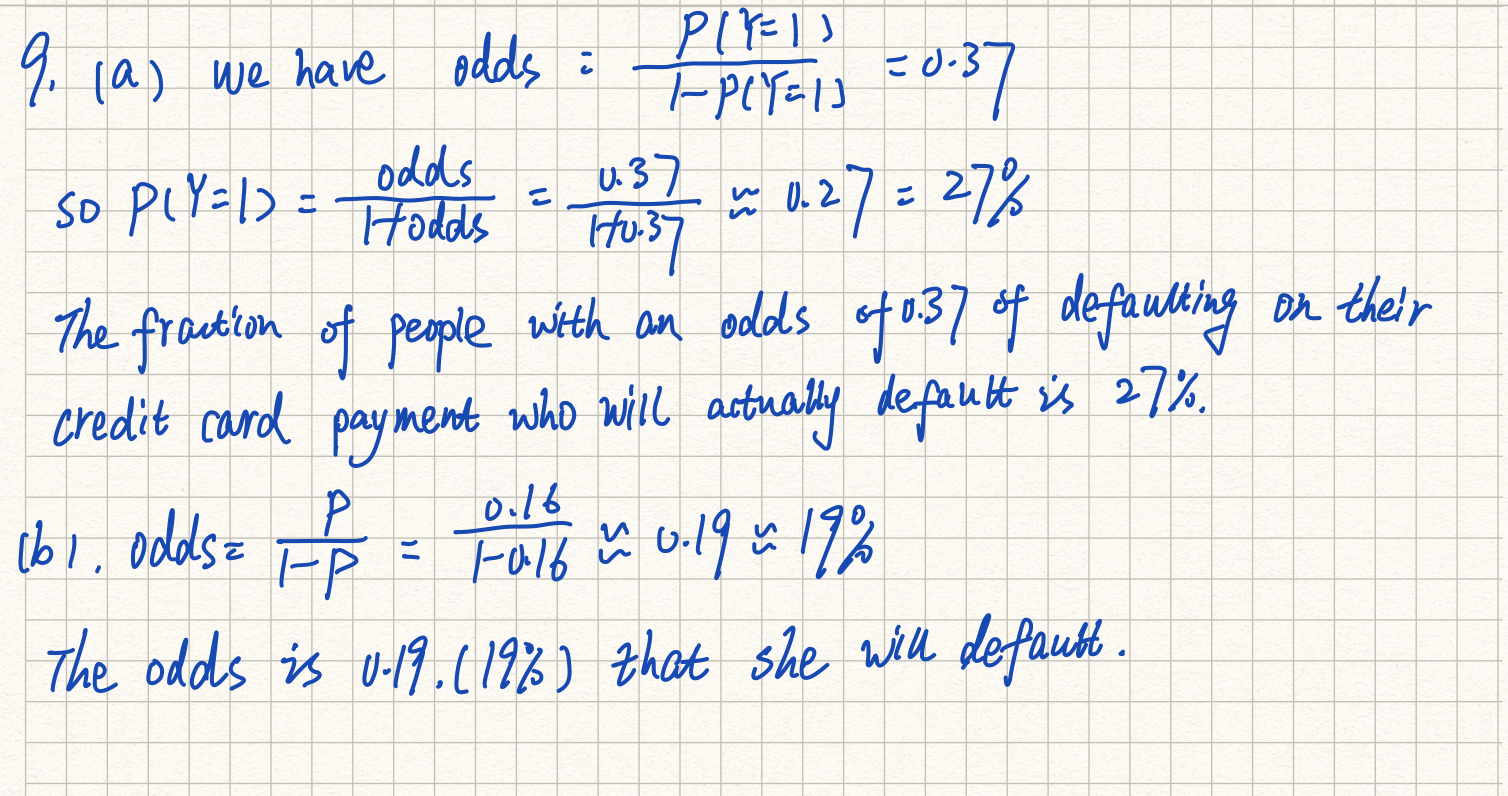 9. (a) we have odds = P(Y=1) / 1-P(Y=1) = 0.37
so P(Y=1) = odds / 1+odds = 0.37 / 1+0.37 ≈ 0.27 = 27%
The fraction of people with an odds of 0.37 of defaulting on their
credit card payment who will actually default is 27%.
(b). odds = P / 1-P = 0.16 / 1-0.16 ≈ 0.19 ≈ 19%
The odds is 0.19. (19%) that she will default.